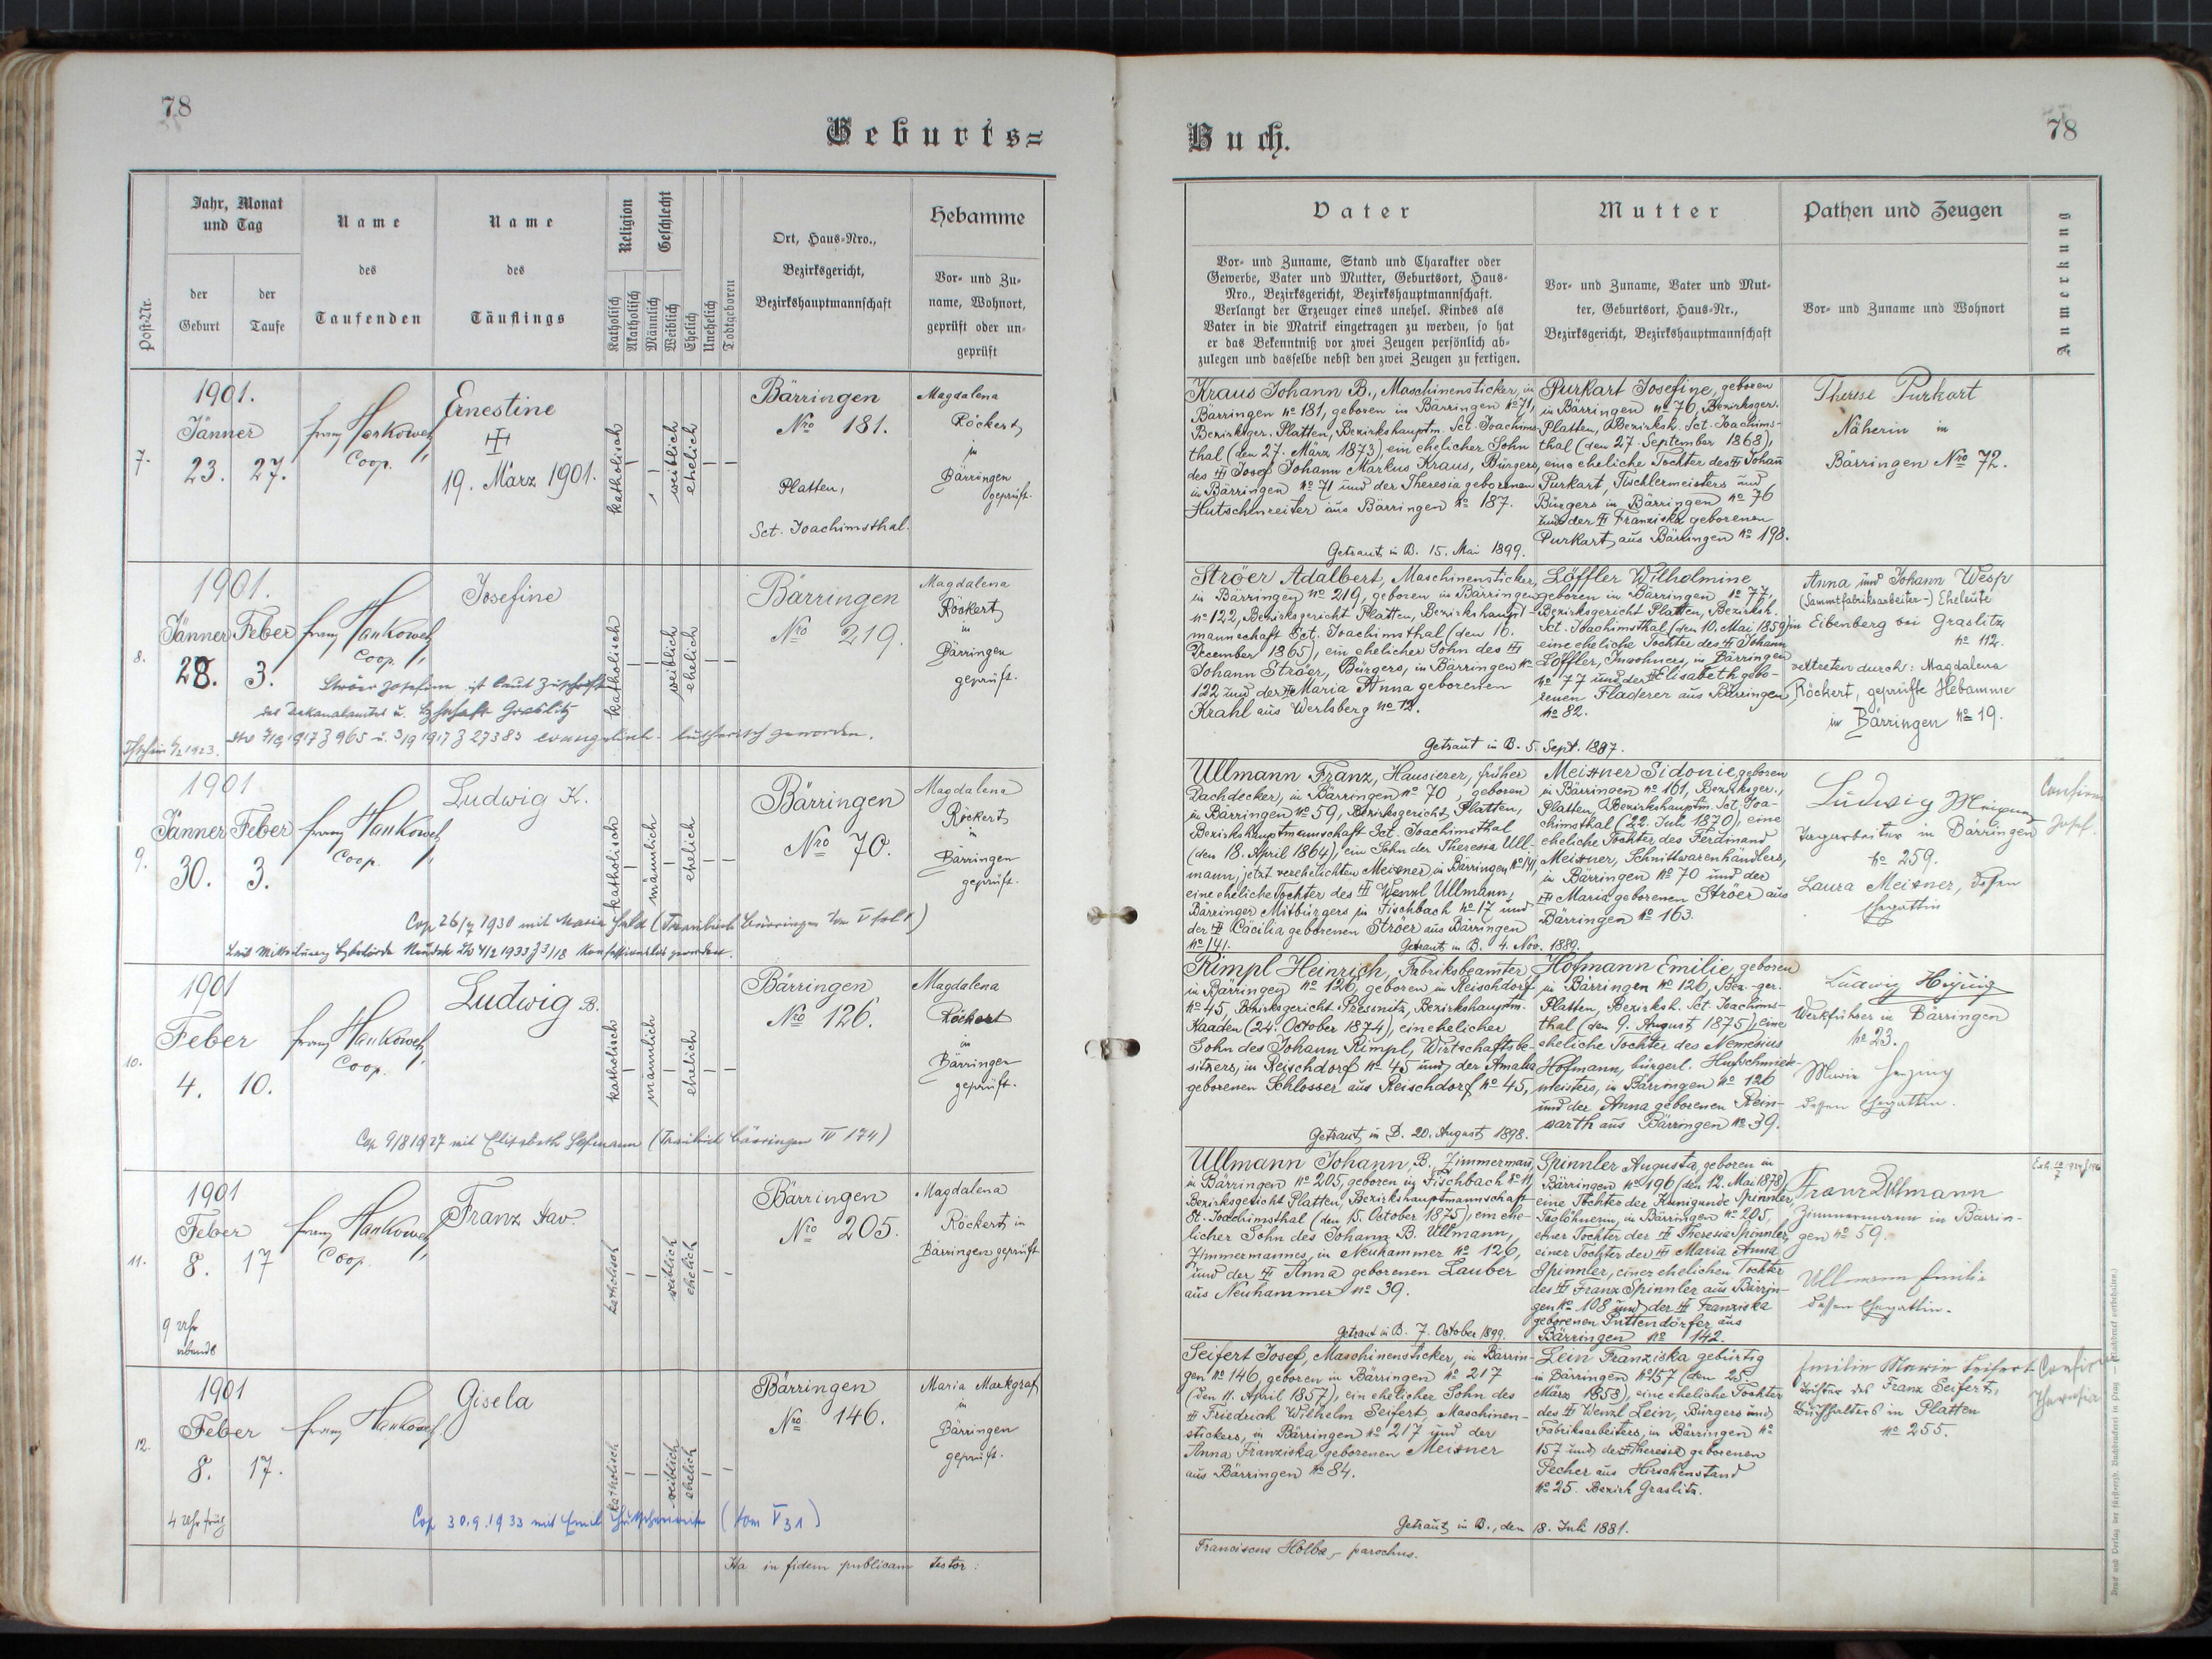 78
Geburts=
Jahr, Monat
und Tag
Name
Name
Religion
Geschlecht
Ort, Haus=Nro.,
Bezirksgericht,
Bezirkshauptmannschaft
Hebamme
Post-Nr.
der
Geburt
der
Taufe
des
Taufenden
des
Täuflings
Katholisch
Akatholisch
Männlich
Weiblich
Ehelich
Unehelich
Todtgeboren
Vor= und Zu=
name, Wohnort,
geprüft oder un=
geprüft
7.
1901.
Jänner
23. 27.
Franz
Coop.
Ernestine
19. März 1901.
katholisch
weiblich
ehelich
Bärringen
Nro 181.
Platten,
Sct. Joachimsthal.
Magdalena
Röckert
in
Bärringen
geprüft.
8.
1901.
Jänner Feber
28. 3.
Franz
Coop.
Josefine
katholisch
weiblich
ehelich
Bärringen
Nro 219.
Magdalena
Röckert
in
Bärringen
geprüft.
Ströer Josefine ist laut Zuschrift
des Dekanalamtes u. Graslitz
evangelisch-lutherisch geworden.
9.
1901
Jänner Feber
30. 3.
Franz
Coop.
Ludwig K.
katholisch
männlich
ehelich
Bärringen
Nro 70.
Magdalena
Röckert
in
Bärringen
geprüft.
Cop 26/7 1930 mit Maria (Traubuch Bärringen Tom V fol 1)
Laut Mitteilung Neudek 4/2 1933 konfessionslos geworden.
10.
1901
Feber
4. 10.
Franz
Coop.
Ludwig B.
katholisch
männlich
ehelich
Bärringen
Nro 126.
Magdalena
Röckert
in
Bärringen
geprüft.
Cop 9/8 1927 mit Elisabeth Hofmann (Traubuch Bärringen IV 174)
11.
1901
Feber
8. 17
9 Uhr
abends
Franz
Coop.
Franz Xav.
katholisch
weiblich
ehelich
Bärringen
Nro 205.
Magdalena
Röckert in
Bärringen geprüft
12.
1901
Feber
8. 17.
4 Uhr früh
Franz
Gisela
katholisch
weiblich
ehelich
Bärringen
Nro 146.
Maria Markgraf
in
Bärringen
geprüft.
Cop 30.9.1933 mit Emil Hutschenreiter (tom V 31)
Ita in fidem publicam testor:
78
Buch.
Vater
Mutter
Pathen und Zeugen
Anmerkung
Vor= und Zuname, Stand und Charakter oder
Gewerbe, Vater und Mutter, Geburtsort, Haus=
Nro., Bezirksgericht, Bezirkshauptmannschaft.
Verlangt der Erzeuger eines unehel. Kindes als
Vater in die Matrik eingetragen zu werden, so hat
er das Bekenntniß vor zwei Zeugen persönlich ab=
zulegen und dasselbe nebst den zwei Zeugen zu fertigen.
Vor= und Zuname, Vater und Mut=
ter, Geburtsort, Haus=Nr.,
Bezirksgericht, Bezirkshauptmannschaft
Vor= und Zuname und Wohnort
Kraus Johann B., Maschinensticker, in
Bärringen No 181, geboren in Bärringen No 71,
Bezirksger. Platten, Bezirkshauptm. Sct. Joachims-
thal (den 27. März 1873), ein ehelicher Sohn
des Josef Johann Markus Kraus, Bürgers,
in Bärringen No 71 und der Theresia geborenen
Hutschenreiter aus Bärringen No 187.
Purkart Josefine, geboren
in Bärringen No 76, Bezirksger.
Platten, Bezirksh. Sct. Joachims-
thal (den 27. September 1868),
eine eheliche Tochter des Johann
Purkart, Tischlermeisters und
Bürgers in Bärringen No 76
und der Franziska geborenen
Purkart aus Bärringen No 198.
Getraut in B. 15. Mai 1899.
Therese Purkart
Näherin in
Bärringen Nro 72.
Ströer Adalbert, Maschinensticker,
in Bärringen No 219, geboren in Bärringen
No 122, Bezirksgericht Platten, Bezirkshaupt-
mannschaft Sct. Joachimsthal (den 16.
December 1865), ein ehelicher Sohn des
Johann Ströer, Bürgers, in Bärringen No
122 und der Maria Anna geborenen
Krahl aus Werlsberg No 12.
Löffler Wilhelmine
geboren in Bärringen No 77,
Bezirksgericht Platten, Bezirksh.
Sct. Joachimsthal (den 10. Mai 1859)
eine eheliche Tochter des Johann
Löffler, Inwohners, in Bärringen
No 77 und der Elisabeth gebo-
renen Fladerer aus Bärringen
No 82.
Getraut in B. 5. Sept. 1887.
Anna und Johann Wesp
(Sammtfabriksarbeiter-) Eheleute
in Eibenberg bei Graslitz
No 112.
vertreten durch: Magdalena
Röckert, geprüfte Hebamme
in Bärringen No 19.
Ullmann Franz, Hausierer, früher
Dachdecker, in Bärringen No 70, geboren
in Bärringen No 59, Bezirksgericht Platten,
Bezirkshauptmannschaft Sct. Joachimsthal
(den 18. April 1864), ein Sohn der Theresia Ull-
mann, jetzt verehelichten Meixner, in Bärringen No 141,
eine eheliche Tochter des Wenzl Ullmann,
Bärringer Mitbürgers in Fischbach No 17 und
der Cäcilia geborenen Ströer aus Bärringen
No 141.
Meixner Sidonie, geboren
in Bärringen No 161, Bezirksger.,
Platten, Bezirkshauptm. Sct. Joa-
chimsthal (22. Juli 1870), eine
eheliche Tochter des Ferdinand
Meixner, Schnittwarenhändlers,
in Bärringen No 70 und der
Maria geborenen Ströer aus
Bärringen No 163.
Getraut in B. 4. Nov. 1889.
Ludwig Meixner
Tagarbeiter in Bärringen
No 259.
Laura Meixner, dessen
Ehegattin
Josef.
Rimpl Heinrich, Fabriksbeamter,
in Bärringen No 126, geboren in Reischdorf
No 45, Bezirksgericht Pressnitz, Bezirkshauptm.
Kaaden (24. October 1874), ein ehelicher
Sohn des Johann Rimpl, Wirtschaftsbe-
sitzers, in Reischdorf No 45 und der Amalia
geborenen Schlosser aus Reischdorf No 45,
Hofmann Emilie, geboren
in Bärringen No 126, Bez.-ger.
Platten, Bezirksh. Sct. Joachims-
thal (den 9. August 1875), eine
eheliche Tochter des Nemesius
Hofmann, bürgerl. Hufschmied-
meisters, in Bärringen No 126
und der Anna geborenen Rein-
warth aus Bärringen No 39.
Getraut in B. 20. August 1898.
Ludwig
Werkführer in Bärringen
No 23.
Marie
dessen Ehegattin.
Ullmann Johann B., Zimmermann,
in Bärringen No 205, geboren in Fischbach No 11,
Bezirksgericht Platten, Bezirkshauptmannschaft
St. Joachimsthal (den 15. October 1875), ein ehe-
licher Sohn des Johann B. Ullmann,
Zimmermannes, in Neuhammer No 126,
und der Anna geborenen Lauber
aus Neuhammer No 39.
Spinnler Augusta, geboren in
Bärringen No 196 (den 12. Mai 1878),
eine Tochter der Kunigunde Spinnler,
Taglöhnerin, in Bärringen No 205,
einer Tochter der Theresia Spinnler,
einer Tochter der Maria Anna
Spinnler, einer ehelichen Tochter
des Franz Spinnler aus Bärrin-
gen No 108 und der Franziska
geborenen Püttendörfer aus
Bärringen No 142.
Getraut in B. 7. October 1899.
Franz Ullmann
Zimmermann in Bärrin-
gen No 59.
Ullmann Emilie
dessen Ehegattin.
Seifert Josef, Maschinensticker, in Bärrin-
gen No 146, geboren in Bärringen No 217
(den 11. April 1857), ein ehelicher Sohn des
Friedrich Wilhelm Seifert, Maschinen-
stickers, in Bärringen No 217 und der
Anna Franziska geborenen Meixner
aus Bärringen No 84.
Lein Franziska gebürtig
in Bärringen No 157 (den 25.
März 1858), eine eheliche Tochter
des Wenzl Lein, Bürgers und
Fabriksarbeiters, in Bärringen No
157 und der Theresia geborenen
Pecher aus Hirschenstand
No 25. Bezirk Graslitz.
Getraut in B., den 18. Juli 1881.
Emilie Marie Seifert
Tochter des Franz Seifert,
Buchhalters in Platten
No 255.
Theresia
Franciscus Holba, parochus.